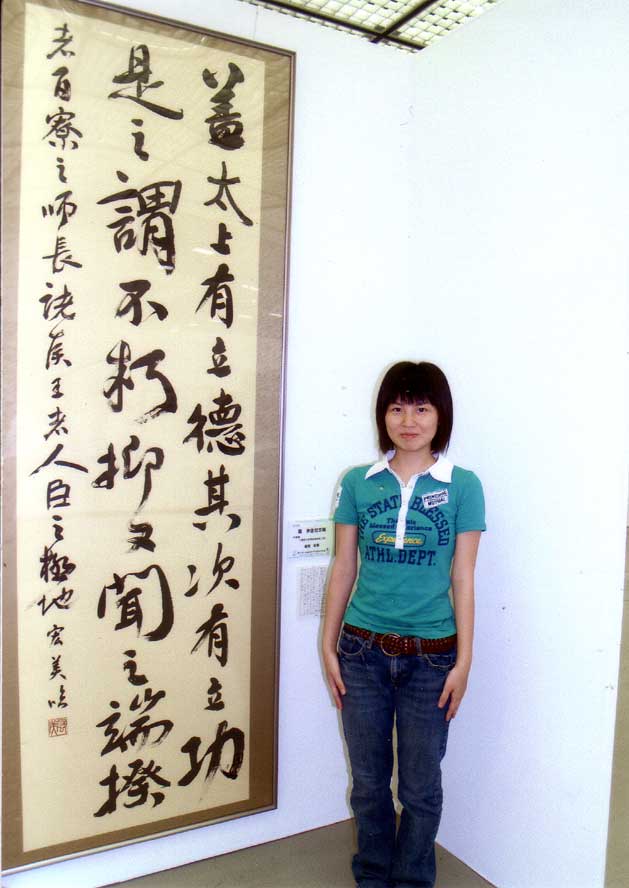 蓋太上有立德其次有立功
是之謂不朽抑又聞之端揆
者百寮之師長諸侯王者人臣之極地 宏美臨
THE STATE BLESSED
Blessed Experience
Experience
ATHL.DEPT.